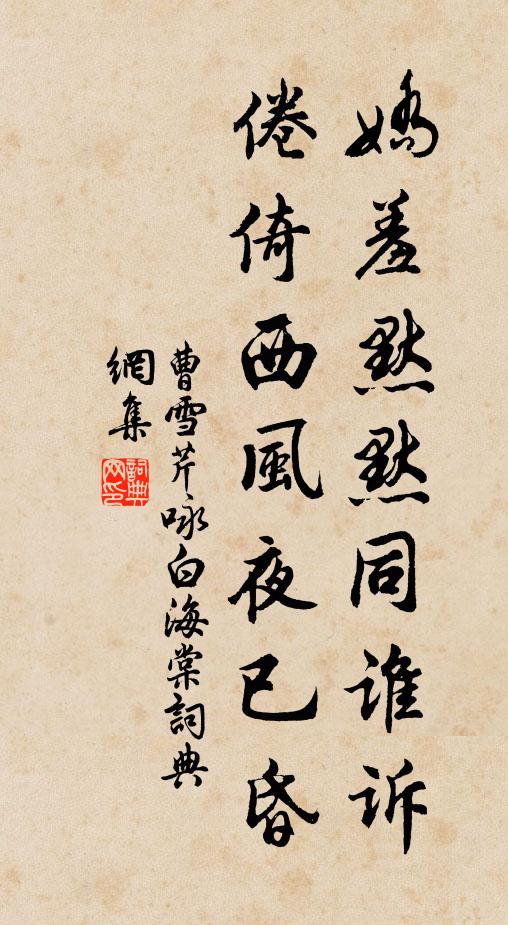 嬌羞默默同誰訴
倦倚西風夜已昏
曹雪芹咏白海棠詞典
網集
詞典
网印